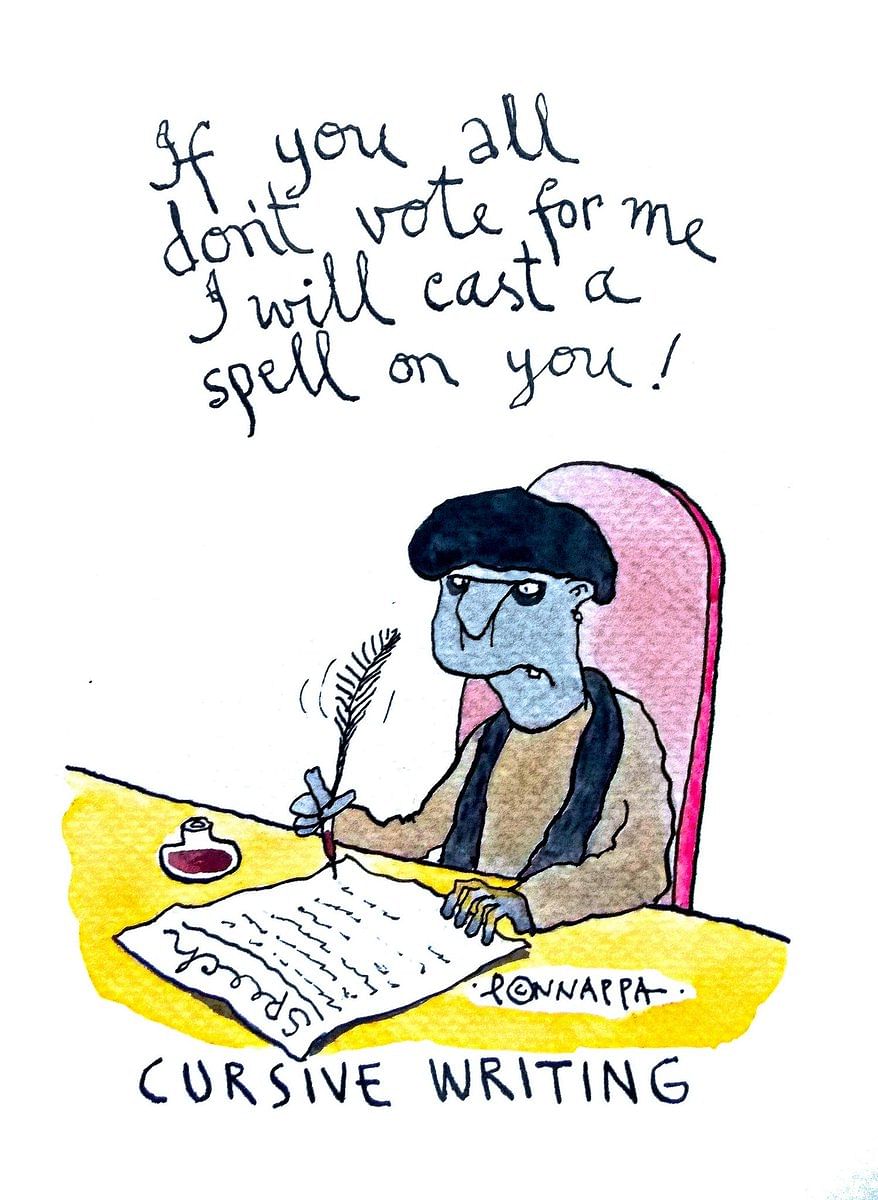 If you all
don't vote for me
I will cast a
spell on you!
speech
PONNAPPA
CURSIVE WRITING